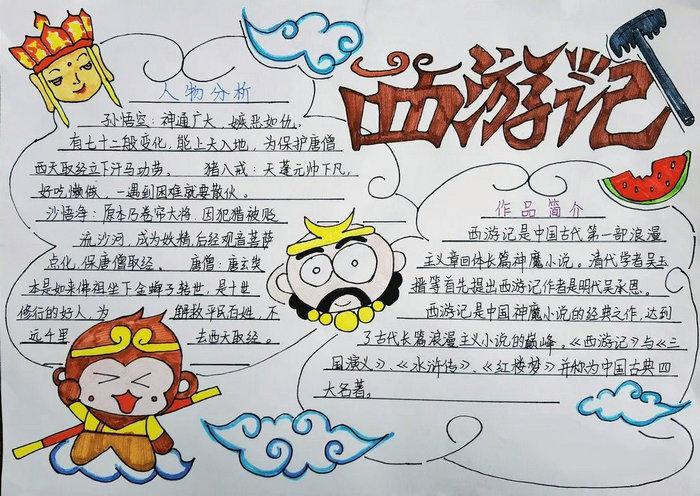 西游记
人物分析
孙悟空：神通广大，嫉恶如仇，
有七十二般变化，能上天入地，为保护唐僧
西天取经立下汗马功劳。 猪八戒：天蓬元帅下凡，
好吃懒做，一遇到困难就要散伙。
沙悟净：原本乃卷帘大将，因犯错被贬
流沙河，成为妖精，后经观音菩萨
点化，保唐僧取经。 唐僧：唐玄奘
本是如来佛祖坐下金蝉子转世，是十世
修行的好人，为 解救平民百姓，不
远千里 去西天取经。
作品简介
西游记是中国古代第一部浪漫
主义章回体长篇神魔小说。清代学者吴玉
搢等首先提出西游记作者是明代吴承恩。
西游记是中国神魔小说的经典之作，达到
了古代长篇浪漫主义小说的巅峰。《西游记》与《三
国演义》、《水浒传》、《红楼梦》并称为中国古典四
大名著。